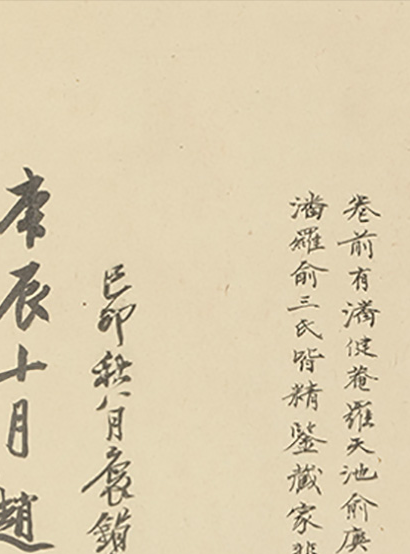 卷前有潘健菴羅天池俞庚
潘羅俞三氏皆精鑒藏家
己卯秋八月褱鋗
庚辰十月趙